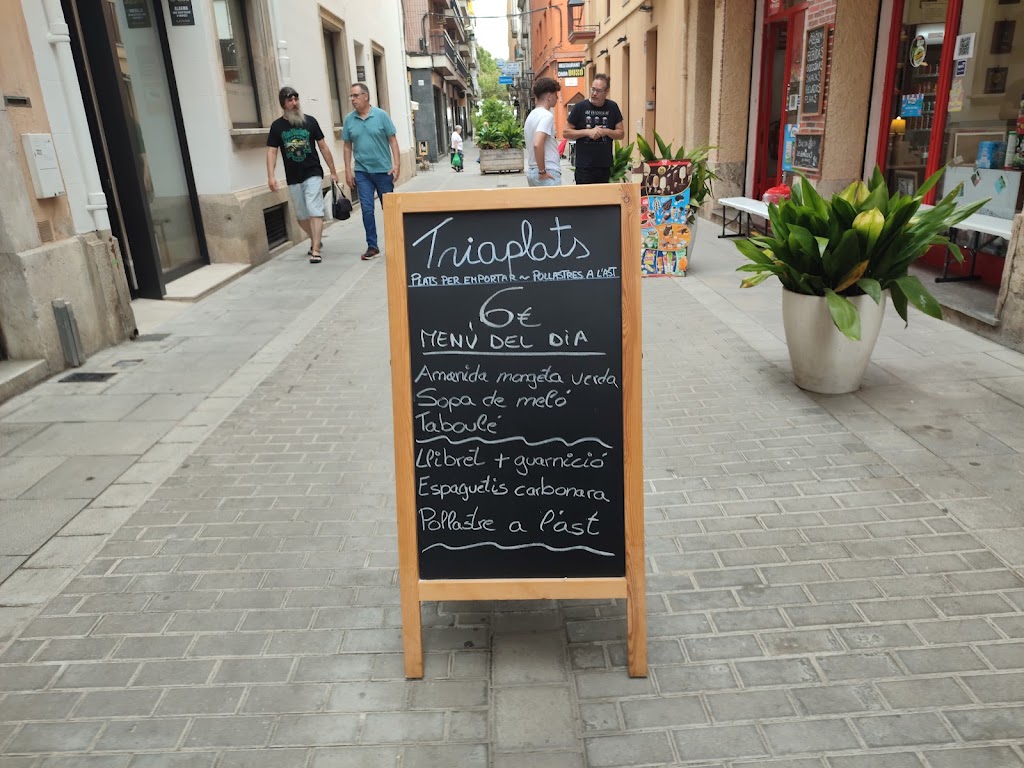 Triaplats
PLATS PER EMPORTAR ~ POLLASTRES A L'AST
6€
MENÚ DEL DIA
Amanida mongeta verda
Sopa de meló
Taboulé
Llibret + guarnició
Espaguetis carbonara
Pollastre a l'ast